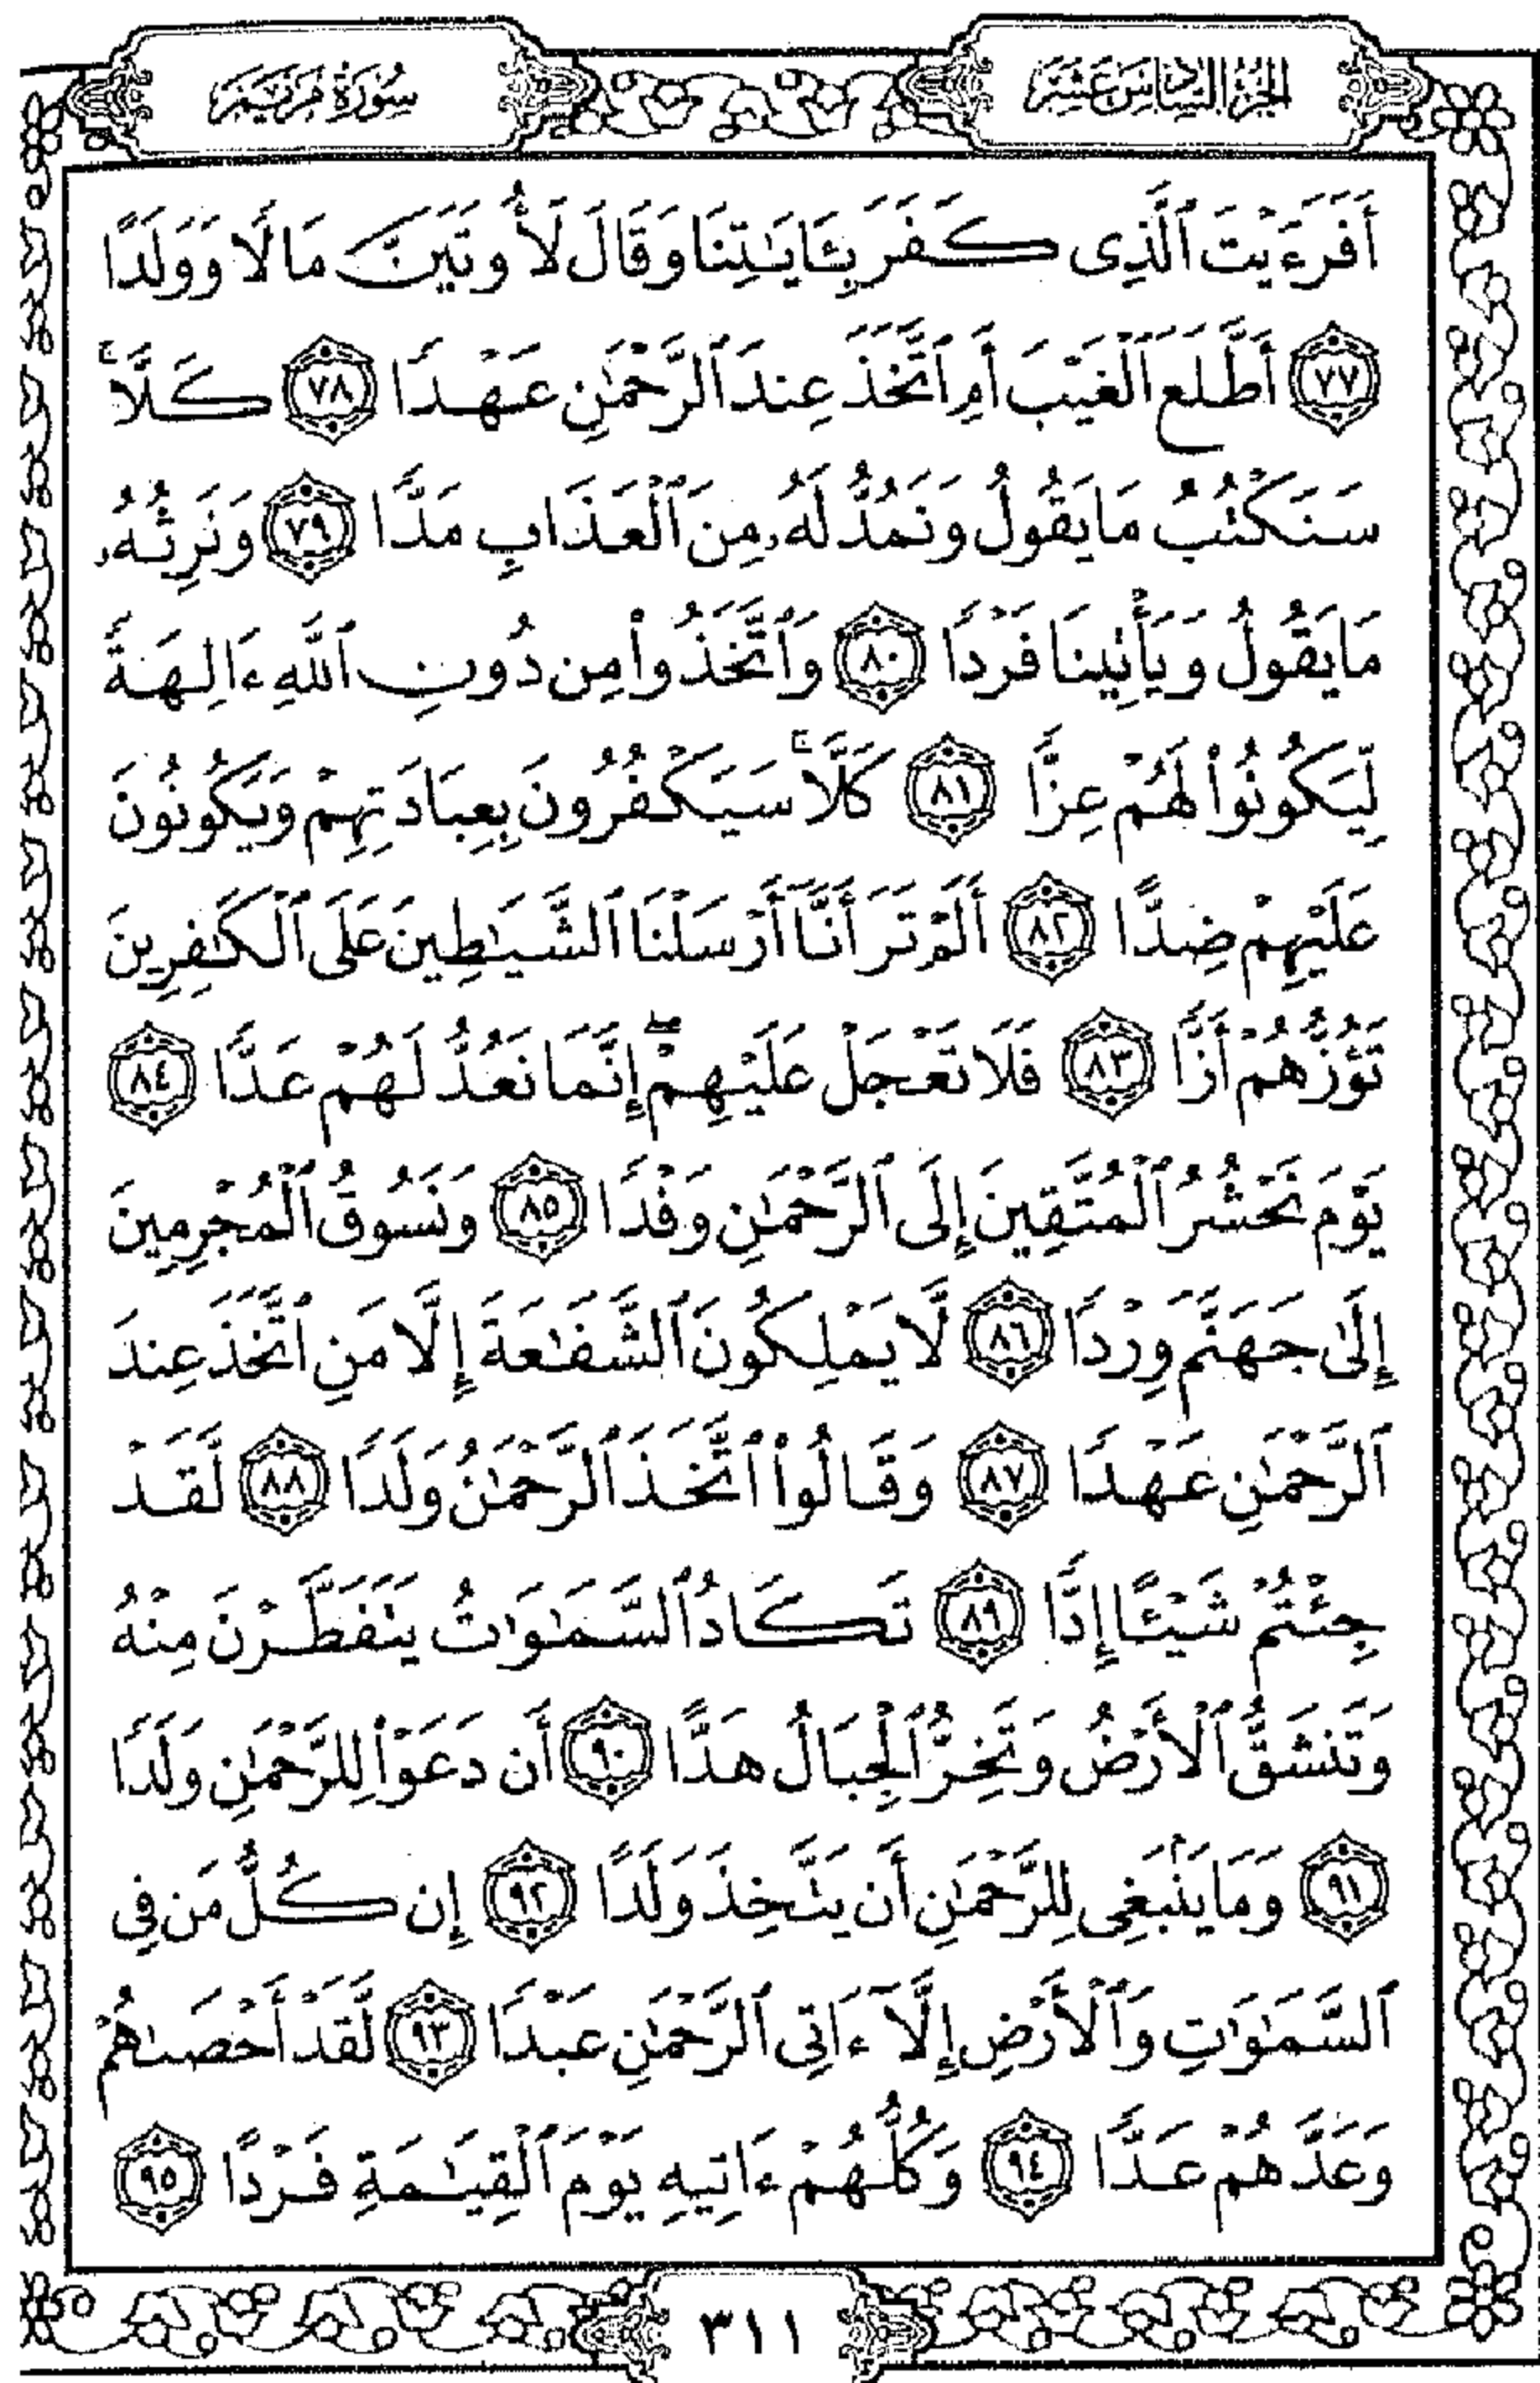 الجزء السادس عشر
سورة مريم
أَفَرَءَيْتَ ٱلَّذِى كَفَرَ بِـَٔايَـٰتِنَا وَقَالَ لَأُوتَيَنَّ مَالًا وَوَلَدًا
﴿٧٧﴾ أَطَّلَعَ ٱلْغَيْبَ أَمِ ٱتَّخَذَ عِندَ ٱلرَّحْمَـٰنِ عَهْدًا ﴿٧٨﴾ كَلَّا ۚ
سَنَكْتُبُ مَا يَقُولُ وَنَمُدُّ لَهُۥ مِنَ ٱلْعَذَابِ مَدًّا ﴿٧٩﴾ وَنَرِثُهُۥ
مَا يَقُولُ وَيَأْتِينَا فَرْدًا ﴿٨٠﴾ وَٱتَّخَذُوا۟ مِن دُونِ ٱللَّهِ ءَالِهَةً
لِّيَكُونُوا۟ لَهُمْ عِزًّا ﴿٨١﴾ كَلَّا ۚ سَيَكْفُرُونَ بِعِبَادَتِهِمْ وَيَكُونُونَ
عَلَيْهِمْ ضِدًّا ﴿٨٢﴾ أَلَمْ تَرَ أَنَّآ أَرْسَلْنَا ٱلشَّيَـٰطِينَ عَلَى ٱلْكَـٰفِرِينَ
تَؤُزُّهُمْ أَزًّا ﴿٨٣﴾ فَلَا تَعْجَلْ عَلَيْهِمْ ۖ إِنَّمَا نَعُدُّ لَهُمْ عَدًّا ﴿٨٤﴾
يَوْمَ نَحْشُرُ ٱلْمُتَّقِينَ إِلَى ٱلرَّحْمَـٰنِ وَفْدًا ﴿٨٥﴾ وَنَسُوقُ ٱلْمُجْرِمِينَ
إِلَىٰ جَهَنَّمَ وِرْدًا ﴿٨٦﴾ لَّا يَمْلِكُونَ ٱلشَّفَـٰعَةَ إِلَّا مَنِ ٱتَّخَذَ عِندَ
ٱلرَّحْمَـٰنِ عَهْدًا ﴿٨٧﴾ وَقَالُوا۟ ٱتَّخَذَ ٱلرَّحْمَـٰنُ وَلَدًا ﴿٨٨﴾ لَّقَدْ
جِئْتُمْ شَيْـًٔا إِدًّا ﴿٨٩﴾ تَكَادُ ٱلسَّمَـٰوَٰتُ يَتَفَطَّرْنَ مِنْهُ
وَتَنشَقُّ ٱلْأَرْضُ وَتَخِرُّ ٱلْجِبَالُ هَدًّا ﴿٩٠﴾ أَن دَعَوْا۟ لِلرَّحْمَـٰنِ وَلَدًا
﴿٩١﴾ وَمَا يَنۢبَغِى لِلرَّحْمَـٰنِ أَن يَتَّخِذَ وَلَدًا ﴿٩٢﴾ إِن كُلُّ مَن فِى
ٱلسَّمَـٰوَٰتِ وَٱلْأَرْضِ إِلَّآ ءَاتِى ٱلرَّحْمَـٰنِ عَبْدًا ﴿٩٣﴾ لَّقَدْ أَحْصَىٰهُمْ
وَعَدَّهُمْ عَدًّا ﴿٩٤﴾ وَكُلُّهُمْ ءَاتِيهِ يَوْمَ ٱلْقِيَـٰمَةِ فَرْدًا ﴿٩٥﴾
٣١١